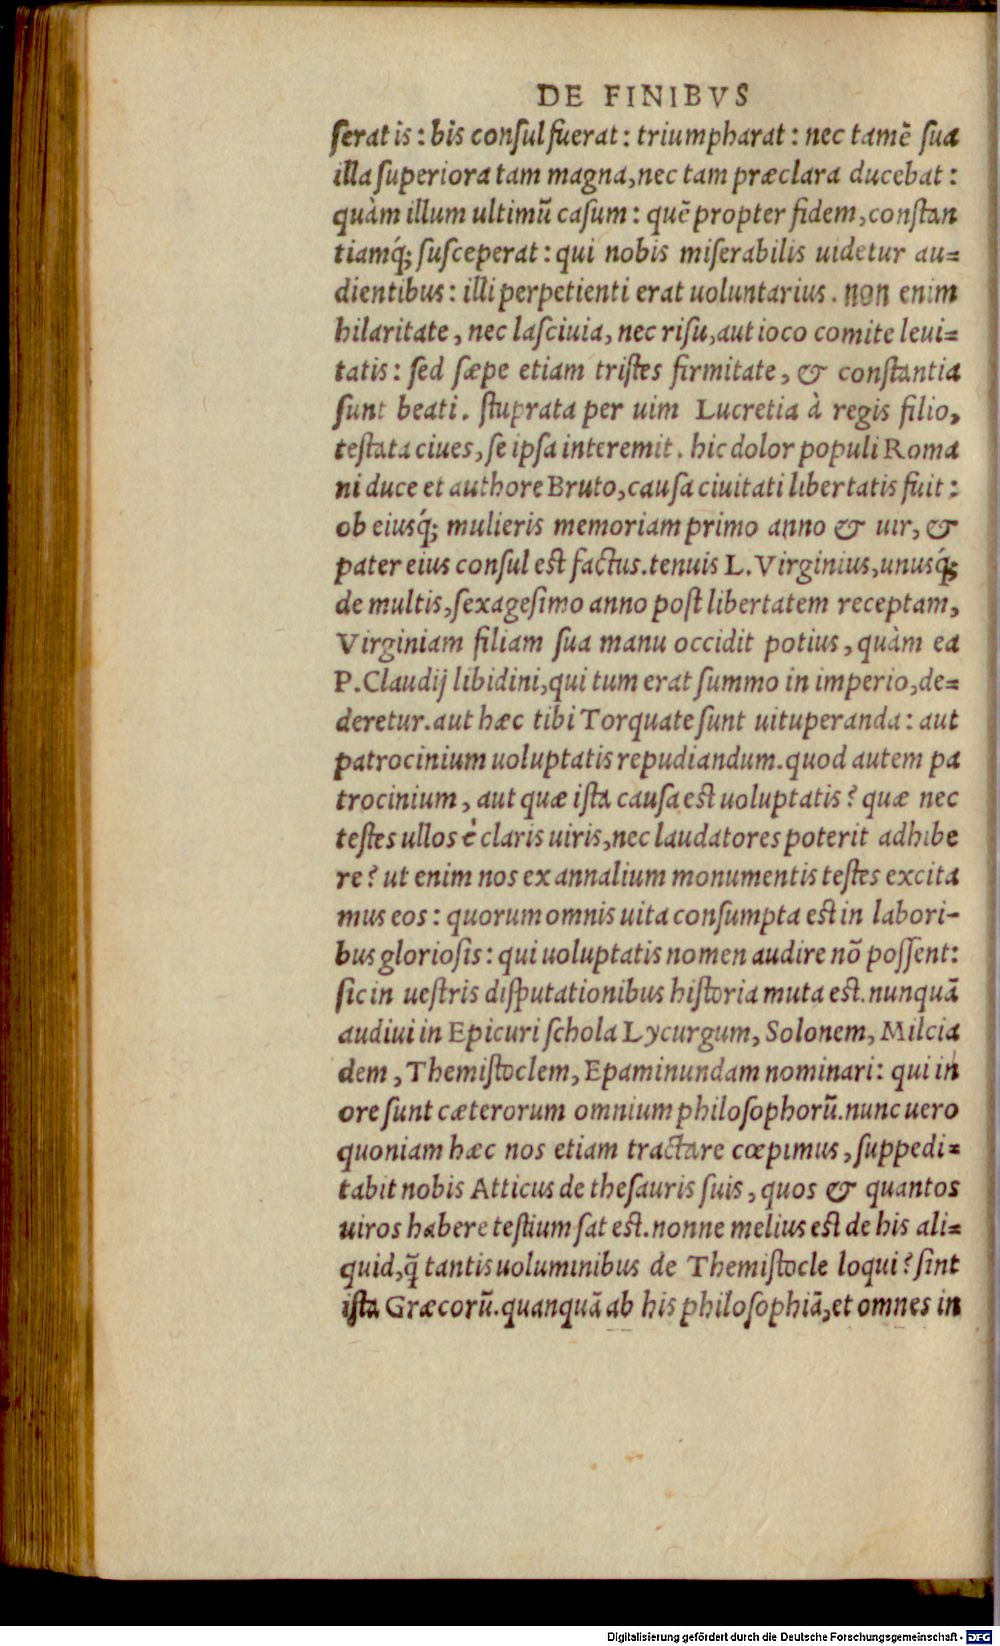 DE FINIBVS
ſerat is : bis conſul fuerat : triumpharat : nec tamē ſua
illa ſuperiora tam magna, nec tam præclara ducebat :
quàm illum ultimū caſum : quē propter fidem, conſtan
tiamq́; ſuſceperat : qui nobis miſerabilis uidetur au=
dientibus : illi perpetienti erat uoluntarius. non enim
hilaritate, nec laſciuia, nec riſu, aut ioco comite leui=
tatis : ſed ſæpe etiam triſtes firmitate, & conſtantia
ſunt beati. ſtuprata per uim Lucretia à regis filio,
teſtata ciues, ſe ipſa interemit. hic dolor populi Roma
ni duce et authore Bruto, cauſa ciuitati libertatis fuit :
ob eiusq́; mulieris memoriam primo anno & uir, &
pater eius conſul eſt factus. tenuis L. Virginius, unusq́;
de multis, ſexageſimo anno poſt libertatem receptam,
Virginiam filiam ſua manu occidit potius, quàm ea
P. Claudij libidini, qui tum erat ſummo in imperio, de=
deretur. aut hæc tibi Torquate ſunt uituperanda : aut
patrocinium uoluptatis repudiandum. quod autem pa
trocinium, aut quæ iſta cauſa eſt uoluptatis? quæ nec
teſtes ullos è claris uiris, nec laudatores poterit adhibe
re? ut enim nos ex annalium monumentis teſtes excita
mus eos : quorum omnis uita conſumpta eſt in labori-
bus glorioſis : qui uoluptatis nomen audire nō poſſent:
ſic in ueſtris diſputationibus hiſtoria muta eſt. nunquā
audiui in Epicuri ſchola Lycurgum, Solonem, Milcia
dem, Themiſtoclem, Epaminundam nominari : qui in
ore ſunt cæterorum omnium philoſophorū. nunc uero
quoniam hæc nos etiam tractare cœpimus, ſuppedi=
tabit nobis Atticus de theſauris ſuis, quos & quantos
uiros habere teſtium ſat eſt. nonne melius eſt de his ali=
quid, q̄ tantis uoluminibus de Themiſtocle loqui? ſint
iſta Græcorū. quanquā ab his philoſophiā, et omnes in
Digitalisierung gefördert durch die Deutsche Forschungsgemeinschaft - DFG